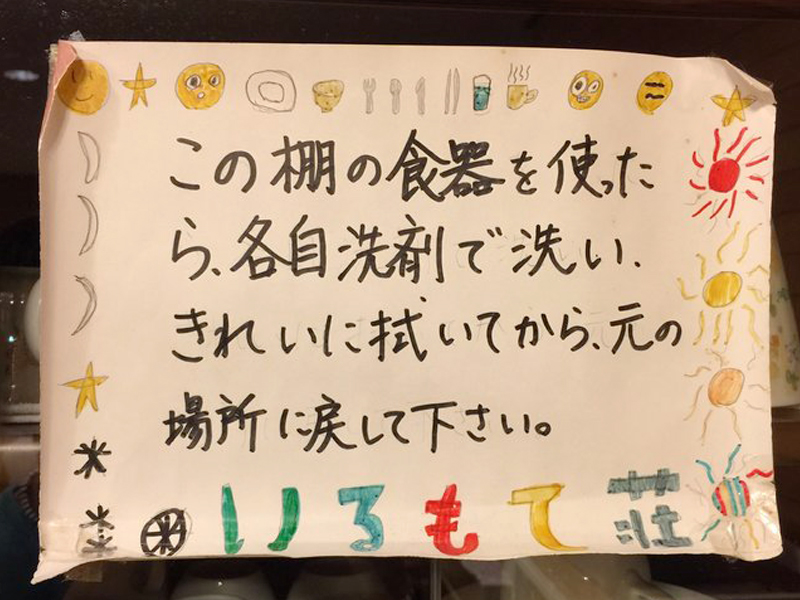 この棚の食器を使った
ら、各自洗剤で洗い、
きれいに拭いてから、元の
場所に戻して下さい。
いろもて荘